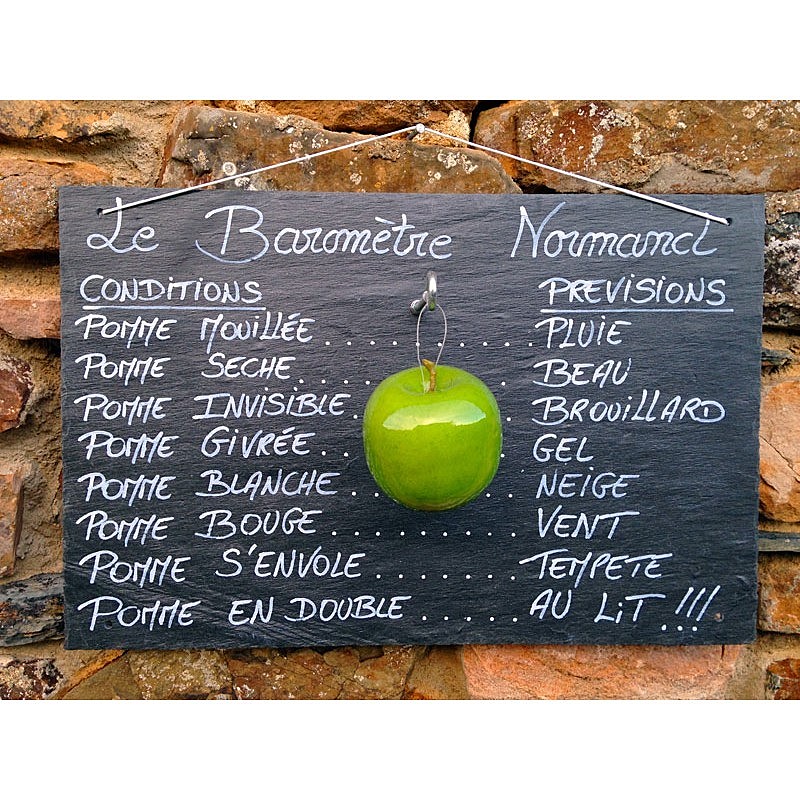 Le Baromètre Normand
CONDITIONS PREVISIONS
POMME MOUILLÉE ........ PLUIE
POMME SECHE ........ BEAU
POMME INVISIBLE. . BROUILLARD
POMME GIVRÉE.. . GEL
POMME BLANCHE .. .. NEIGE
POMME BOUGE .......... VENT
POMME S'ENVOLE ........ TEMPETE
POMME EN DOUBLE ...... AU LiT !!!